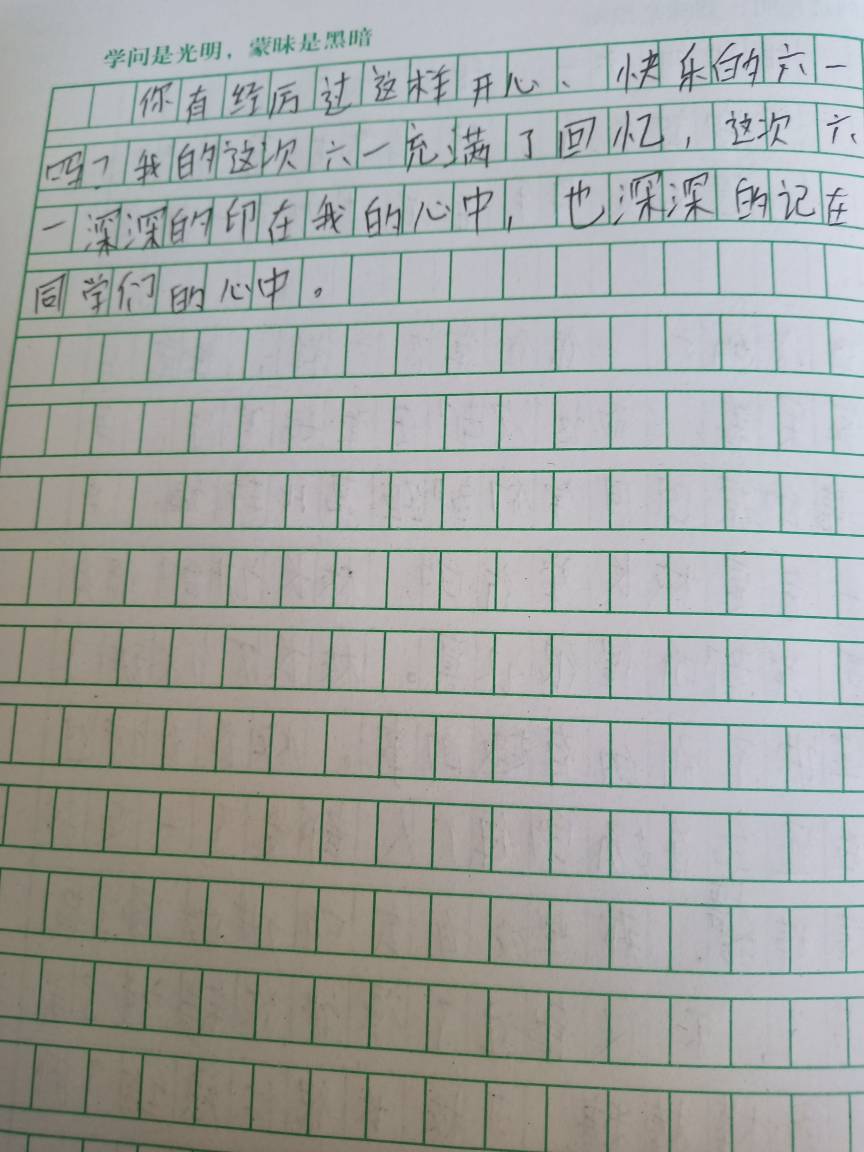 学问是光明，蒙昧是黑暗
你有经历过这样开心、快乐的六一
吗？我的这次六一充满了回忆，这次六
一深深的印在我的心中，也深深的记在
同学们的心中。